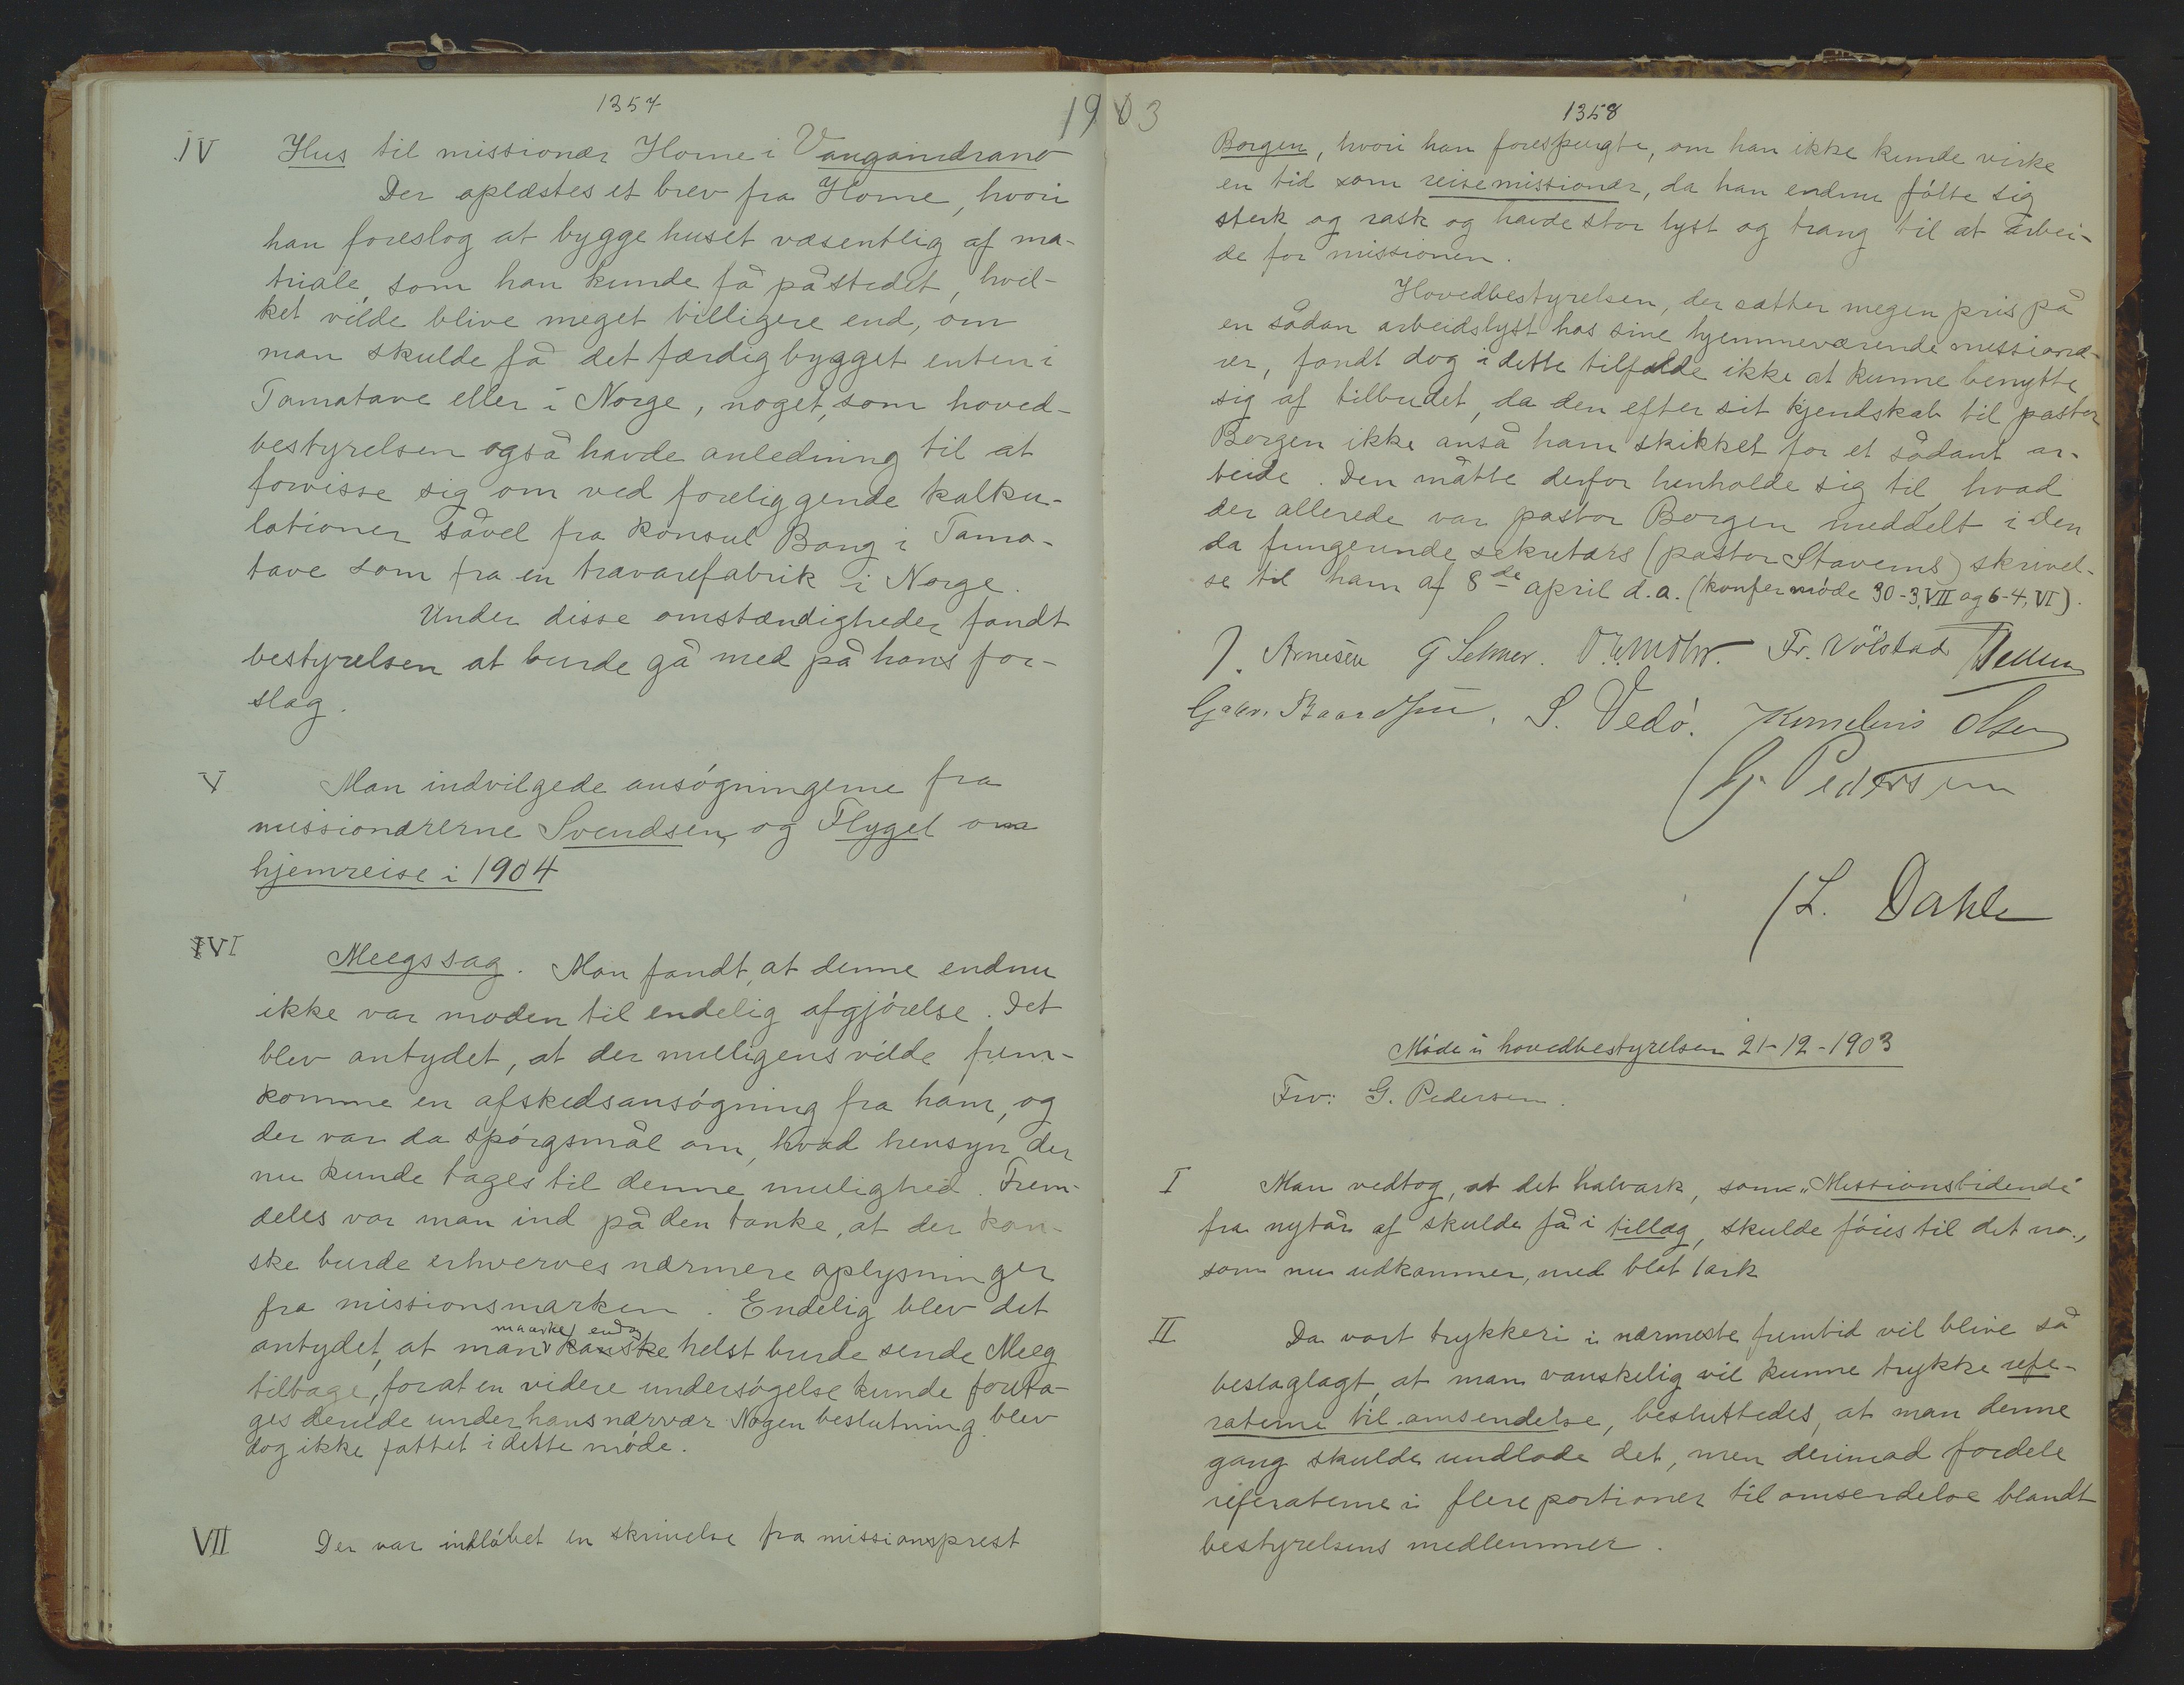 1357
1903
IV Hus til missionær Horne i Vangaindrano
Der oplæstes et brev fra Horne, hvori
han foreslog at bygge huset væsentlig af ma-
triale, som han kunde få på stedet, hvil-
ket vilde blive meget billigere end, om
man skulde få det færdigbygget enten i
Tamatave eller i Norge, noget, som hoved-
bestyrelsen også havde anledning til at
forvisse sig om ved foreliggende kalku-
lationer såvel fra konsul Bang i Tama-
tave som fra en travarefabrik i Norge.
Under disse omstændigheder fandt
bestyrelsen at burde gå med på hans for-
slag.
V Man indvilgede ansøgningerne fra
missionærerne Svendsen og Flyget om
hjemreise i 1904
VI Meegs sag. Man fandt, at denne endnu
ikke var moden til endelig afgjørelse. Det
blev antydet, at der muligens vilde frem-
komme en afskedsansøgning fra ham, og
der var da spørgsmål om, hvad hensyn der
nu kunde tages til denne mulighed. Frem-
deles var man ind på den tanke, at der kan-
ske burde erhverves nærmere oplysninger
fra missionsmarken. Endelig blev det
maaske endog
antydet, at man kanske helst burde sende Meeg
tilbage, forat en videre undersøgelse kunde foreta-
ges derude under hans nærvær. Nogen beslutning blev
dog ikke fattet i dette møde.
VII Der var indløbet en skrivelse fra missionsprest
1358
Borgen, hvori han forespurgte, om han ikke kunde virke
en tid som reisemissionær, da han endnu følte sig
sterk og rask og havde stor lyst og trang til at arbei-
de for missionen.
Hovedbestyrelsen, der sætter megen pris på
en sådan arbeidslyst hos sine hjemmeværende missionæ-
rer, fandt dog i dette tilfælde ikke at kunne benytte
sig af tilbudet, da den efter sit kjendskab til pastor
Borgen ikke anså ham skikket for et sådant ar-
beide. Den måtte derfor henholde sig til, hvad
der allerede var pastor Borgen meddelt i den
da fungerende sekretærs (pastor Stavems) skrivel-
se til ham af 8de april d.a. (konfer møde 30-3, VII og 6-4, VI).
J. Arnesen G Selmer. Fr. Völstad
S. Vedø. Kornelius Olsen
G. Pedersen
/L. Dahle
Møde i hovedbestyrelsen 21-12-1903
Frv: G. Pedersen.
I Man vedtog, at det halvark, som "Missionstidende"
fra nytår af skulde få i tillæg, skulde føies til det no.,
som nu udkommer, med blot 1 ark
II Da vort trykkeri i nærmeste fremtid vil blive så
beslaglagt, at man vanskelig vil kunne trykke refe-
raterne til omsendelse, besluttedes, at man denne
gang skulde undlade det, men derimod fordele
referaterne i flere portioner til omsendelse blandt
bestyrelsens medlemmer.